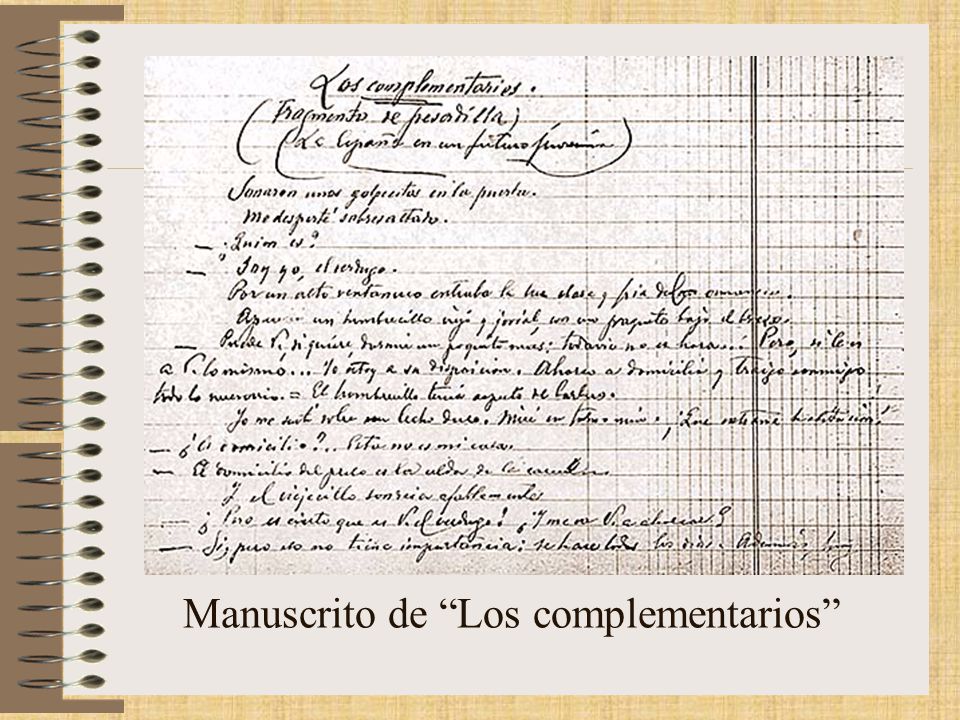 Los complementarios.
(Fragmento de pesadilla)
(La España en un futuro próximo)
Sonaron unos golpecitos en la puerta.
Me desperté sobresaltado.
— ¿Quien es?
— Soy yo, el verdugo.
Por un alto ventanuco entraba la luz y fria del
un hombrecillo viejo y jovial, con un paquete bajo el brazo.
— Puede V., si quiere, dormir un poquito mas; todavia no es hora... Pero, si le es
a V. lo mismo... Yo estoy a su disposicion. Ahorco a domicilio y traigo conmigo
todo lo necesario. = El hombrecillo tenia aspecto de barbero.
Yo me senté sobre lecho duro. Miré en torno mio. ¡Que habitacion!
— ¿A domicilio?... Esta no es mi casa.
— El domicilio del reo es la celda de la
Y el viejecillo sonreia afablemente
— ¿Pero es cierto que es V. el verdugo? ¿Y me va V. a ahorcar?
— Si, pero eso no tiene importancia: se hace todos los dias. Ademas,
Manuscrito de “Los complementarios”